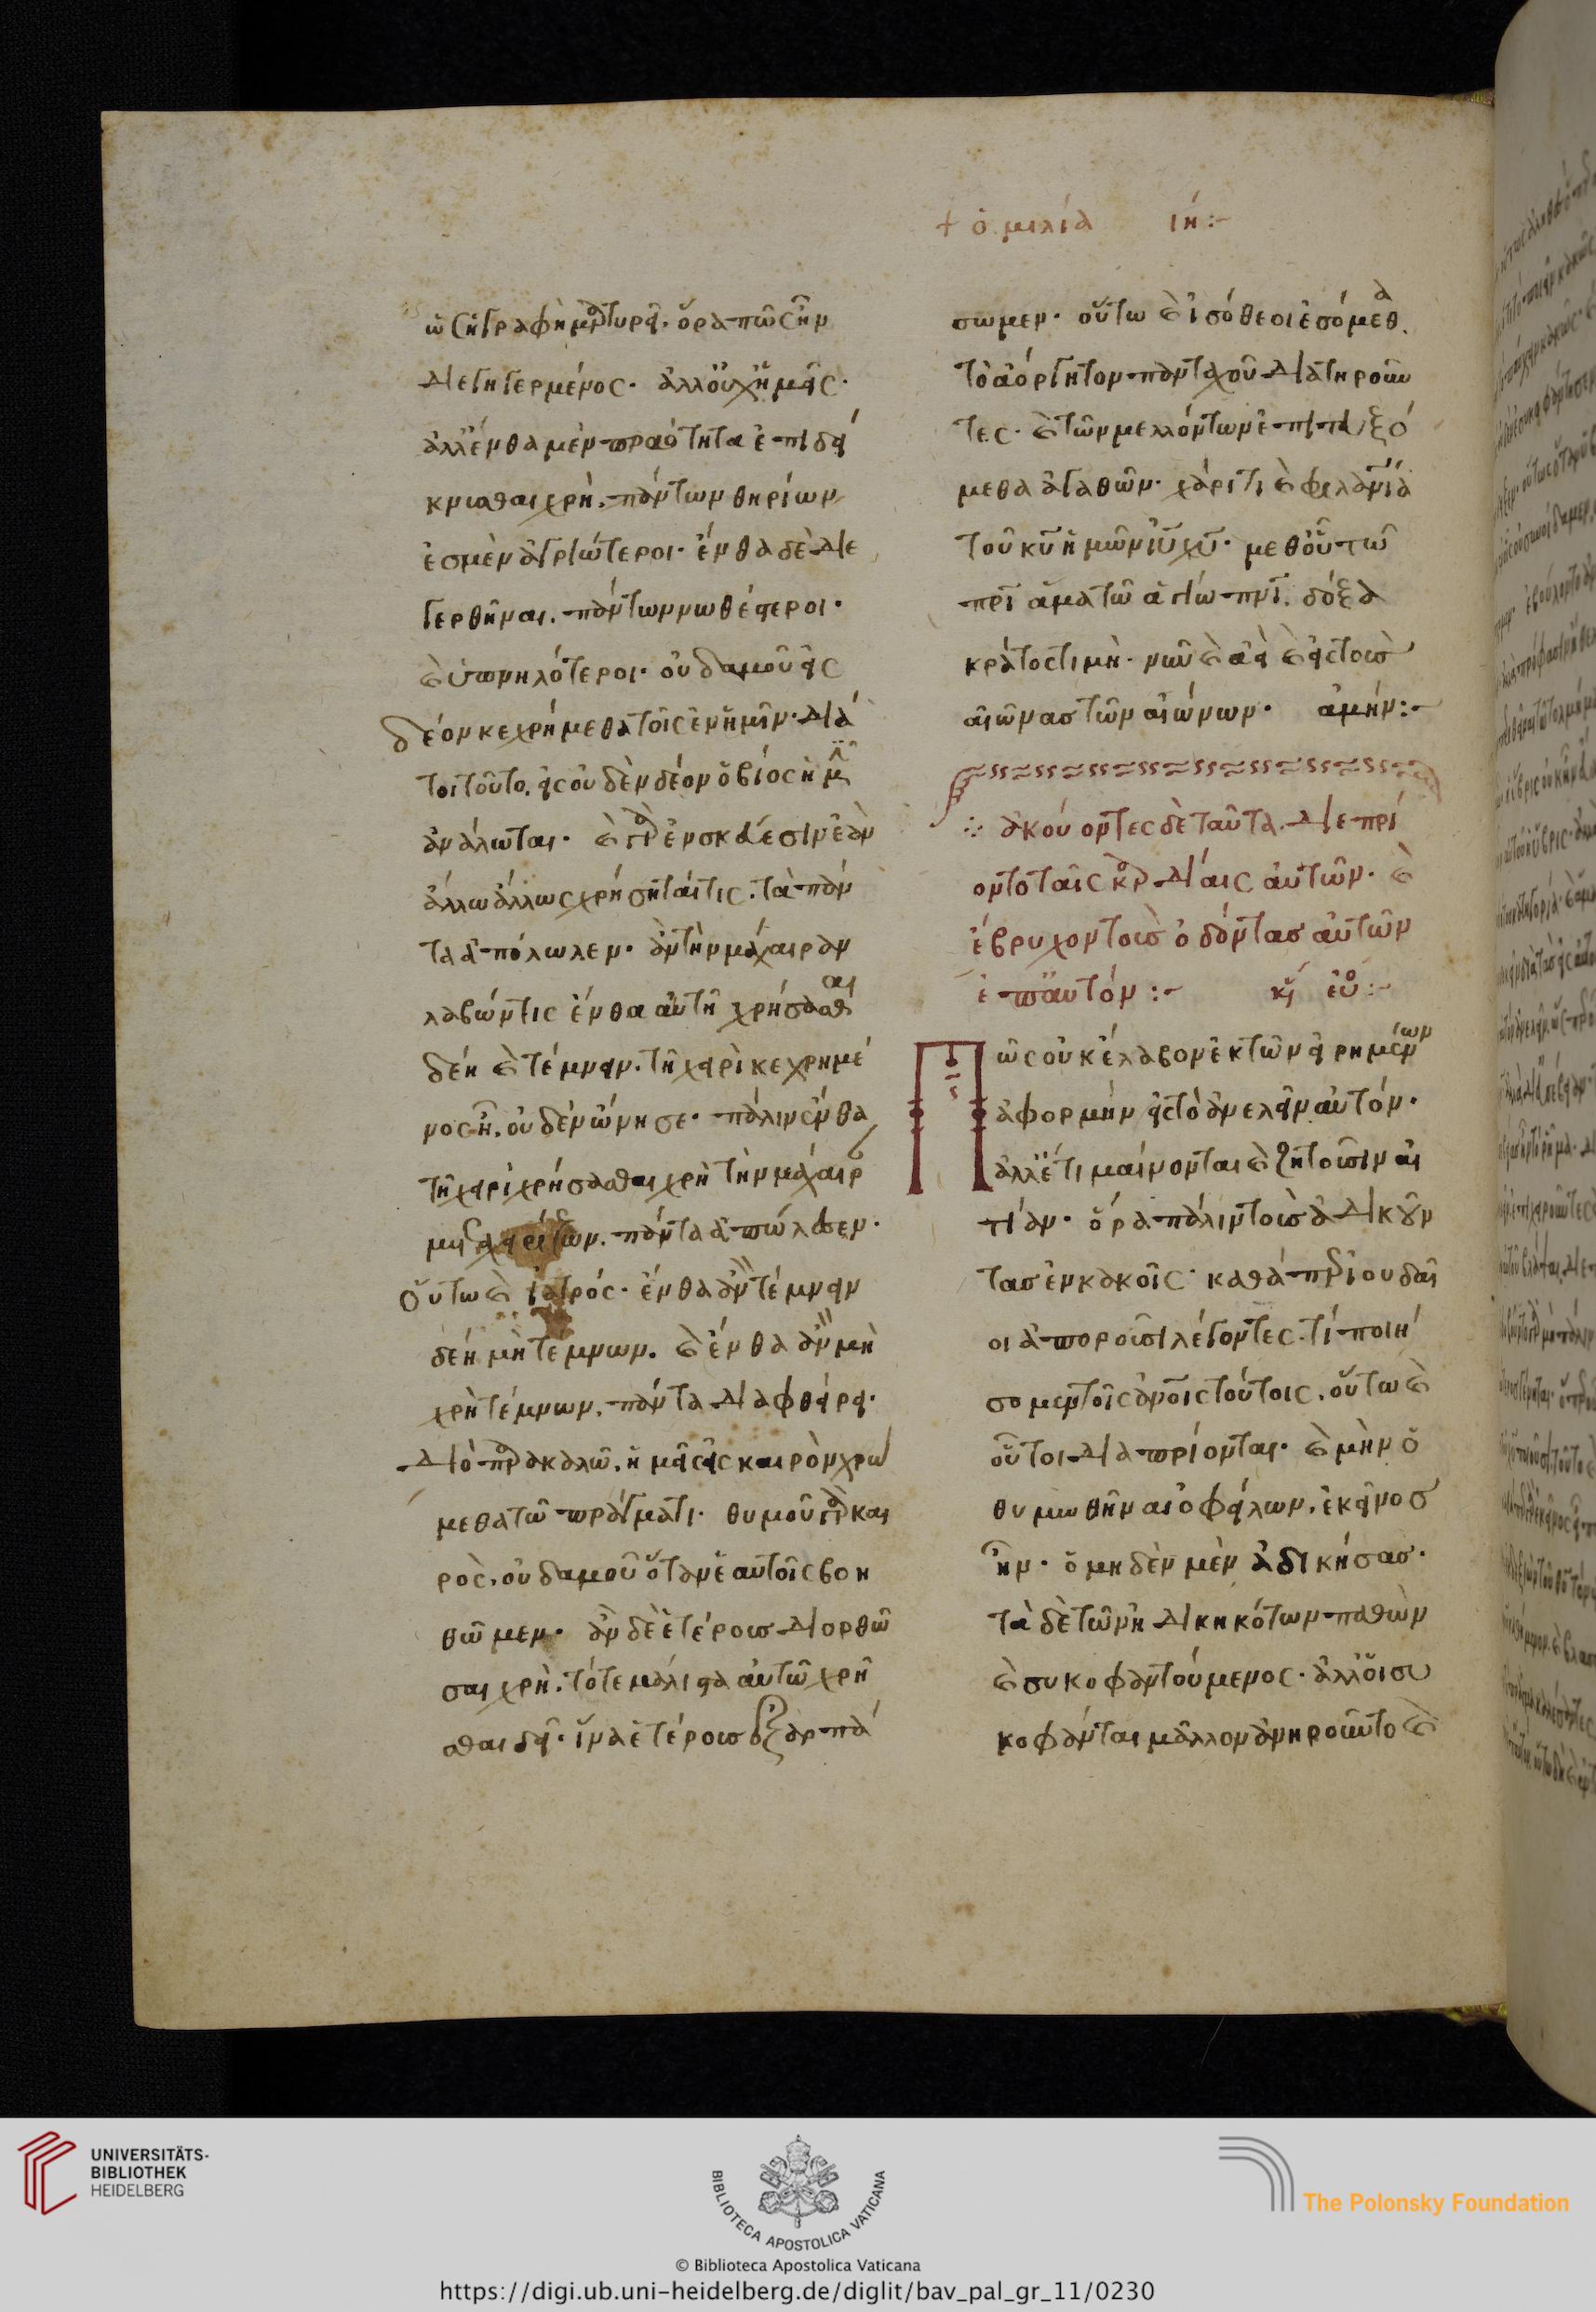 + ὁμιλία ιη:~
ὡς ἡ γραφὴ μαρτυρεῖ. ὅρα πῶς ἦν
διεγηγερμένος. ἀλλ' οὐχ ἡμεῖς.
ἀλλ' ἔνθα μὲν πραότητα ἐπιδεί
κνυσθαι χρὴ. πάντων θηρίων
ἐσμὲν ἀγριώτεροι. ἔνθα δὲ διε
γερθῆναι. πάντων νωθέστεροι.
καὶ ὑπνηλότεροι. οὐδαμοῦ εἰς
δέον κεχρήμεθα τοῖς ἐν ἡμῖν. διά
τοι τοῦτο. εἰς οὐδὲν δέον ὁ βίος ἡμῖν
ἀνάλωται. καὶ γὰρ ἐν σκεύεσιν ἐὰν
ἄλλω ἄλλως χρήσηταί τις. τὰ πάν
τα ἀπόλωλεν. ἂν τὴν μάχαιραν
λαβών τις ἔνθα αὐτῆ χρήσασθαι
δέη καὶ τέμνειν. τῆ χειρὶ κεχρημέ
νος ἦ. οὐδὲν ὤνησε. πάλιν ἔνθα
τῆ χειρὶ χρήσασθαι χρὴ τὴν μάχαιρ
μεταχειρίζων. πάντα ἀπώλεσεν.
οὕτω καὶ ἰατρός. ἔνθα ἂν τέμνειν
δέη μὴ τέμνων. καὶ ἔνθα ἂν μὴ
χρὴ τέμνων. πάντα διαφθείρει.
διὸ παρακαλῶ. ἡμεῖς εἰς καιρὸν χρώ
μεθα τῶ πράγματι. θυμοῦ γὰρ και
ρὸς. οὐδαμοῦ ὅταν ἑαυτοῖς βοη
θῶμεν. ἂν δὲ ἑτέρους διορθῶ
σαι χρὴ. τότε μάλιστα αὐτῶ χρῆ
σθαι δεῖ. ἵνα ἑτέρους ἐξαρπά
σωμεν. οὕτω καὶ ἰσόθεοι ἐσόμεθα
τὸ ἀόργητον πανταχοῦ διατηροῦν
τες. καὶ τῶν μελλόντων ἐπιτευξό
μεθα ἀγαθῶν. χάριτι καὶ φιλανίᾳ
τοῦ κυ ἡμῶν ιυ χυ. μεθ' οὗ τῶ
πρι ἅμα τῶ ἁγίω πνι. δόξα
κράτος τιμὴ. νῦν καὶ ἀεὶ καὶ εἰς τοὺς
αἰῶνας τῶν αἰώνων. ἀμήν:~
ἀκούοντες δὲ ταῦτα. διεπρί
οντο ταῖς καρδίαις αὐτῶν. καὶ
ἔβρυχον τοὺς ὀδόντας αὐτῶν
ἐπ' αὐτόν:~
Πῶς οὐκ ἔλαβον ἐκ τῶν εἰρημένων
ἀφορμὴν εἰς τὸ ἀνελεῖν αὐτόν.
ἀλλ' ἔτι μαίνονται καὶ ζητοῦσιν αἰ
τίαν. ὅρα πάλιν τοὺς ἀδικοῦν
τας ἐν κακοῖς. καθάπερ ἰουδαῖ
οι ἀποροῦσι λέγοντες. τί ποιή
σομεν τοῖς ἀνοις τούτοις. οὕτω καὶ
οὗτοι διαπρίονται. καὶ μὴν ὁ
θυμωθῆναι ὀφείλων. ἐκεῖνος
ἦν. ὁ μηδὲν μὲν ἀδικήσας.
τὰ δὲ τῶν ἠδικηκότων παθὼν
καὶ συκοφαντούμενος. ἀλλ' οἱ συ
κοφάνται μᾶλλον ἀνηροῦντο καὶ
UNIVERSITÄTS-
BIBLIOTHEK
HEIDELBERG
BIBLIOTECA APOSTOLICA VATICANA
The Polonsky Foundation
© Biblioteca Apostolica Vaticana
https://digi.ub.uni-heidelberg.de/diglit/bav_pal_gr_11/0230